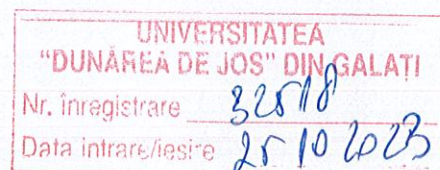 UNIVERSITATEA
"DUNĂREA DE JOS" DIN GALAȚI
Nr. înregistrare 32518
Data intrare/ieșire 25 10 2023